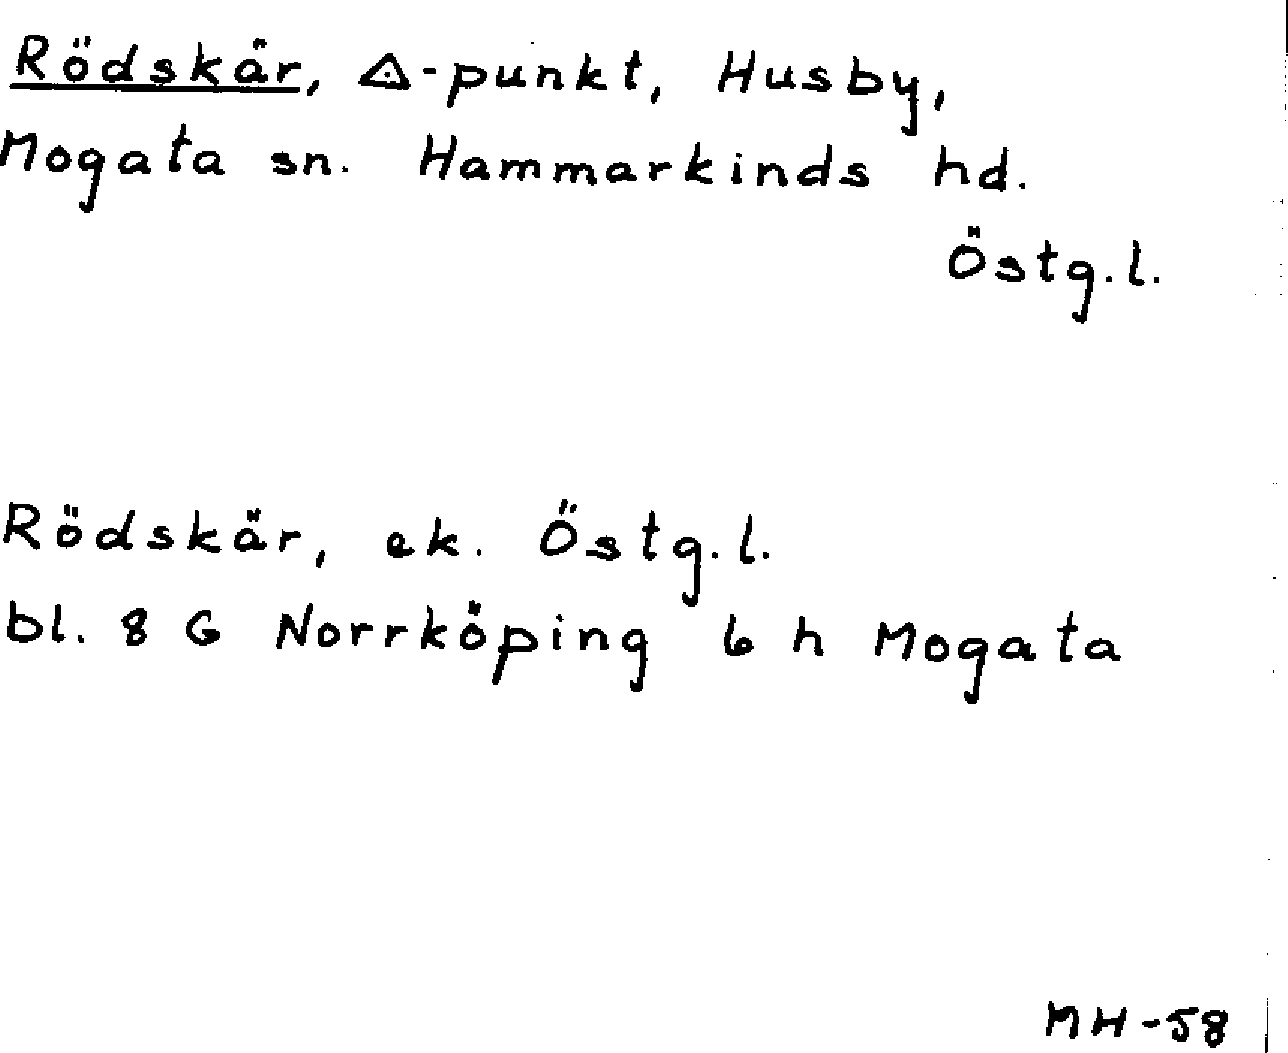 Rödskär, △-punkt, Husby,
Mogata sn. Hammarkinds hd.
Östg.l.
Rödskär, ek. Östg.l.
bl. 8 G Norrköping 6 h Mogata
MH-58